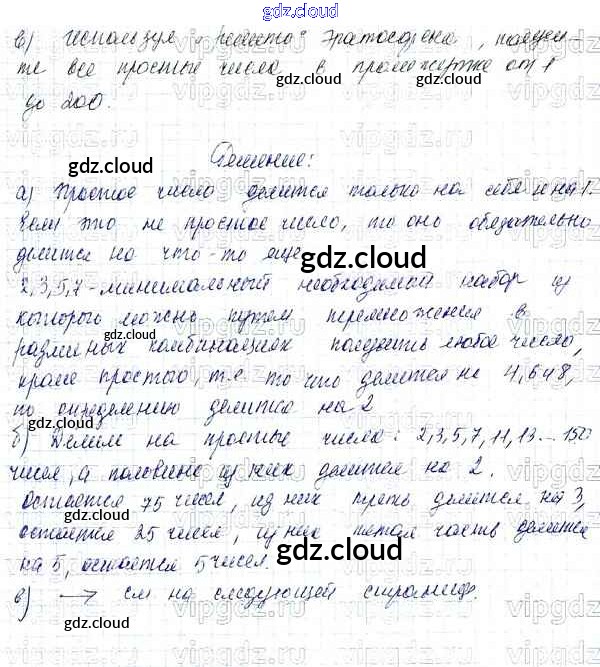 gdz.cloud
в) Используя "решето" Эратосфена, найди-
те все простые числа в промежутке от 1
до 200.
Решение:
а) Простое число делится только на себя и на 1.
Если это не простое число, то оно обязательно
делится на что-то еще
2,3,5,7 - минимальный необходимый набор из
которого можно путем перемножения в
различных комбинациях получить любое число,
кроме простого, т.к то что делится на 4,6 и 8,
по определению делится на 2
б) Делим на простые числа: 2,3,5,7,11,13...150
чисел, а половина из них делится на 2.
Остается 75 чисел, из них треть делится на 3,
остается 25 чисел, из них пятая часть делится
на 5, остается 5 чисел.
в) → см на следующей странице.